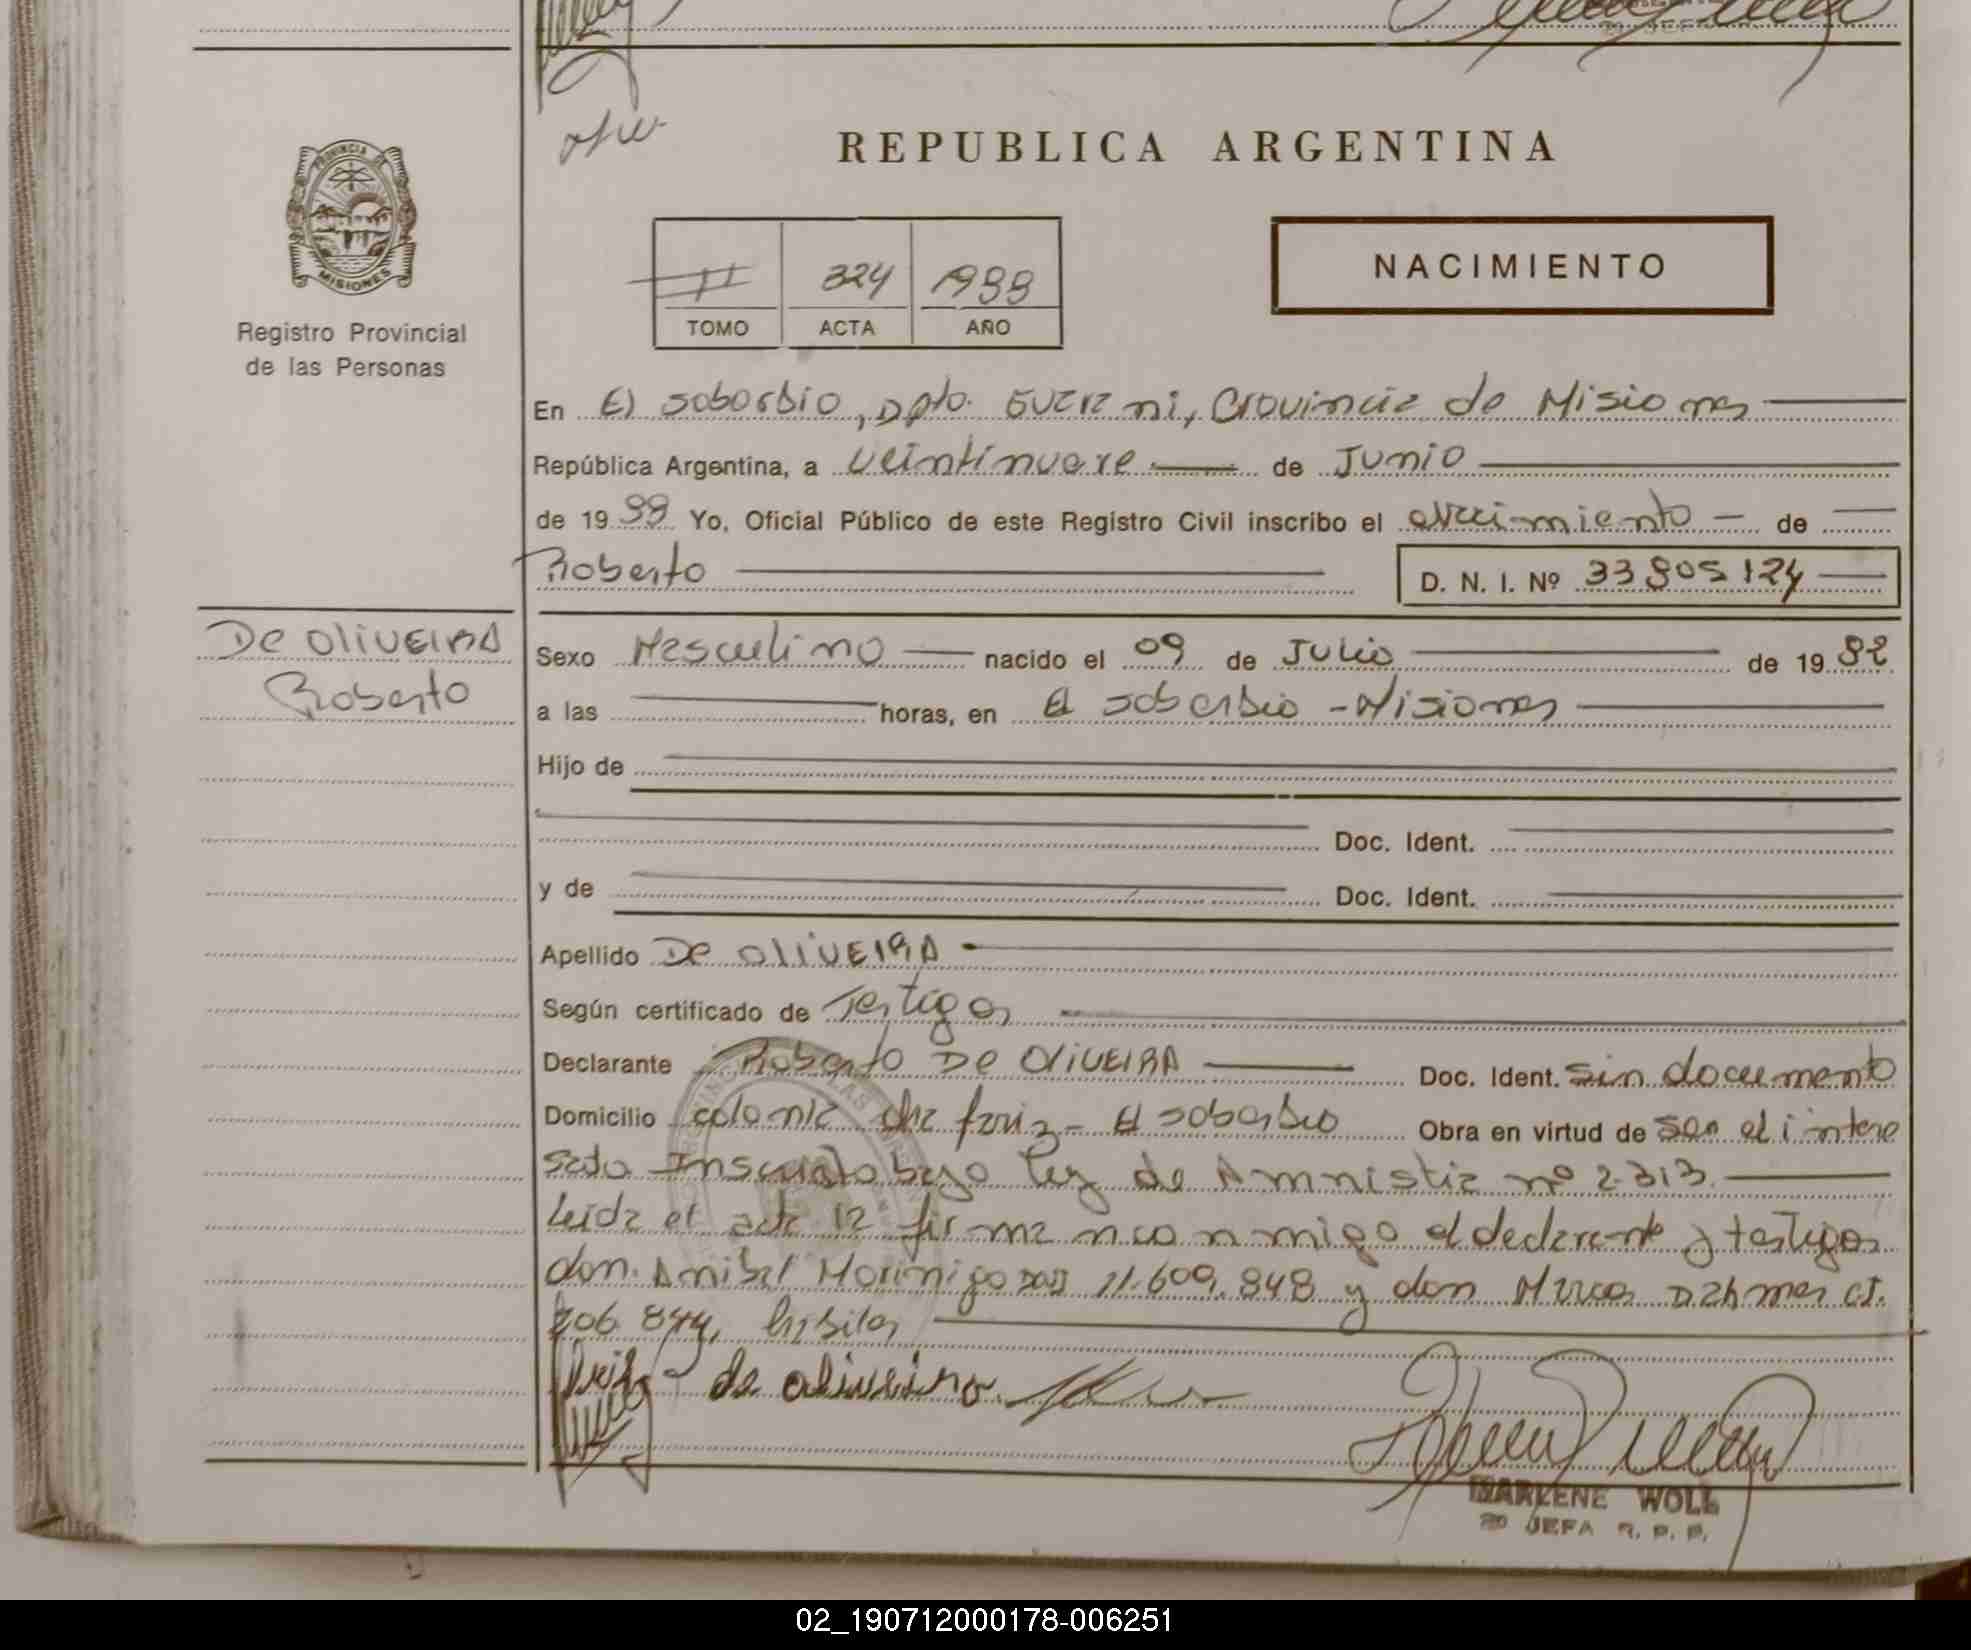 REPUBLICA ARGENTINA
PROVINCIA DE
MISIONES
Registro Provincial
de las Personas
II 324 1988
TOMO ACTA AÑO
NACIMIENTO
En El soberbio, Dpto. Guarani, Provincia de Misiones
República Argentina, a veintinueve de Junio
de 19 88 Yo, Oficial Público de este Registro Civil inscribo el nacimiento de
Roberto
D. N. I. Nº 33905124
De OLIVEIRA
Roberto
Sexo Masculino nacido el 09 de Julio de 19 82
a las horas, en El soberbio - Misiones
Hijo de
Doc. Ident.
y de Doc. Ident.
Apellido De OLIVEIRA
Según certificado de Testigos
Declarante Roberto De OLIVEIRA Doc. Ident. sin documento
Domicilio colonia El soberbio Obra en virtud de ser el intere
sado Inscripto bajo ley de Amnistia nº 2.313.
Leida el acta la firman conmigo el declarante y testigos
don. Anibal Morinigo DNI 11.609.848 y don Marcos Dahmer CI.
206.844, habiles
de oliveira
MARLENE WOLL
JEFA R. P. P.
02_190712000178-006251